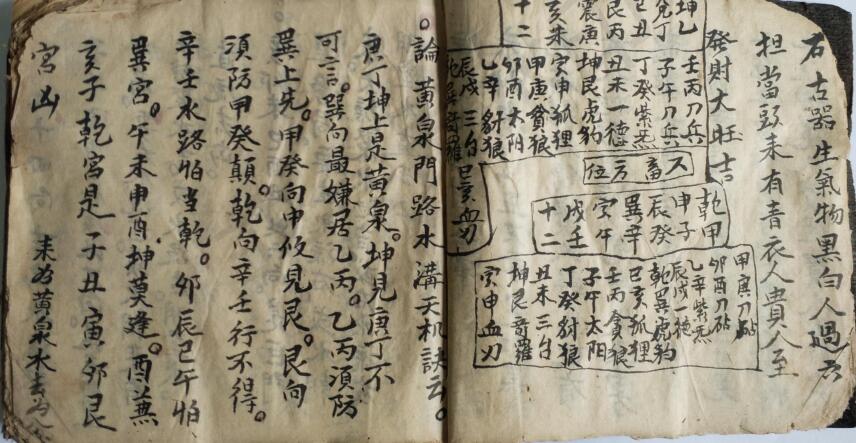 石古器生氣物黑白人過六
担當頭來有音衣人貴人至
發財大旺吉
坤乙
兌丁
己丑
艮丙
震庚
亥未
十二
壬丙刀兵
子午刀兵
丁癸紫炁
丑未一德
坤艮虎豹
寅申狐狸
甲庚貪狼
卯酉太阳
乙辛豺狼
辰戌三台
乾巽奇羅
巳亥血刃
六畜方位
乾甲
申子
辰癸
巽辛
寅午
戌壬
十二
甲庚刀砧
卯酉刀砧
乙辛紫炁
辰戌一德
乾巽虎豹
巳亥狐狸
壬丙貪狼
子午太阳
丁癸豺狼
丑未三台
坤艮奇羅
寅申血刃
論黃泉門路水溝天机訣云
庚丁坤上是黃泉。坤見庚丁不
可言。巽向最嫌居乙丙。乙丙須防
巽上先。甲癸向中休見艮。艮向
須防甲癸顛。乾向辛壬行不得。
辛壬水路怕当乾。卯辰巳午怕
巽宮。午未申酉坤莫逢。酉兼
亥子乾宮是子丑寅卯艮
宮凶
來為黃泉水去為